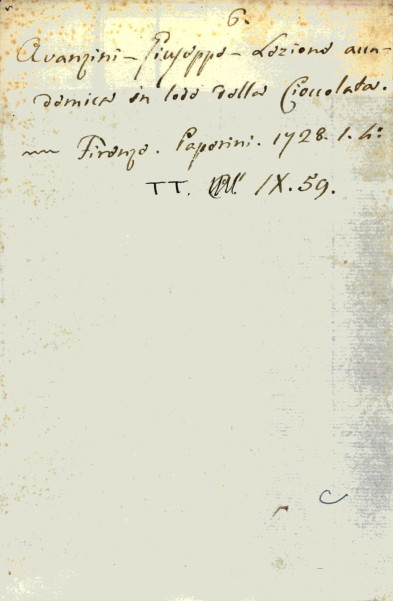 6.
Avanzini - Giuseppe - Lezione acca-
demica in lode della Cioccolata.
Firenze. Paperini. 1728. 1. 4:
TT. IX. 59.
C